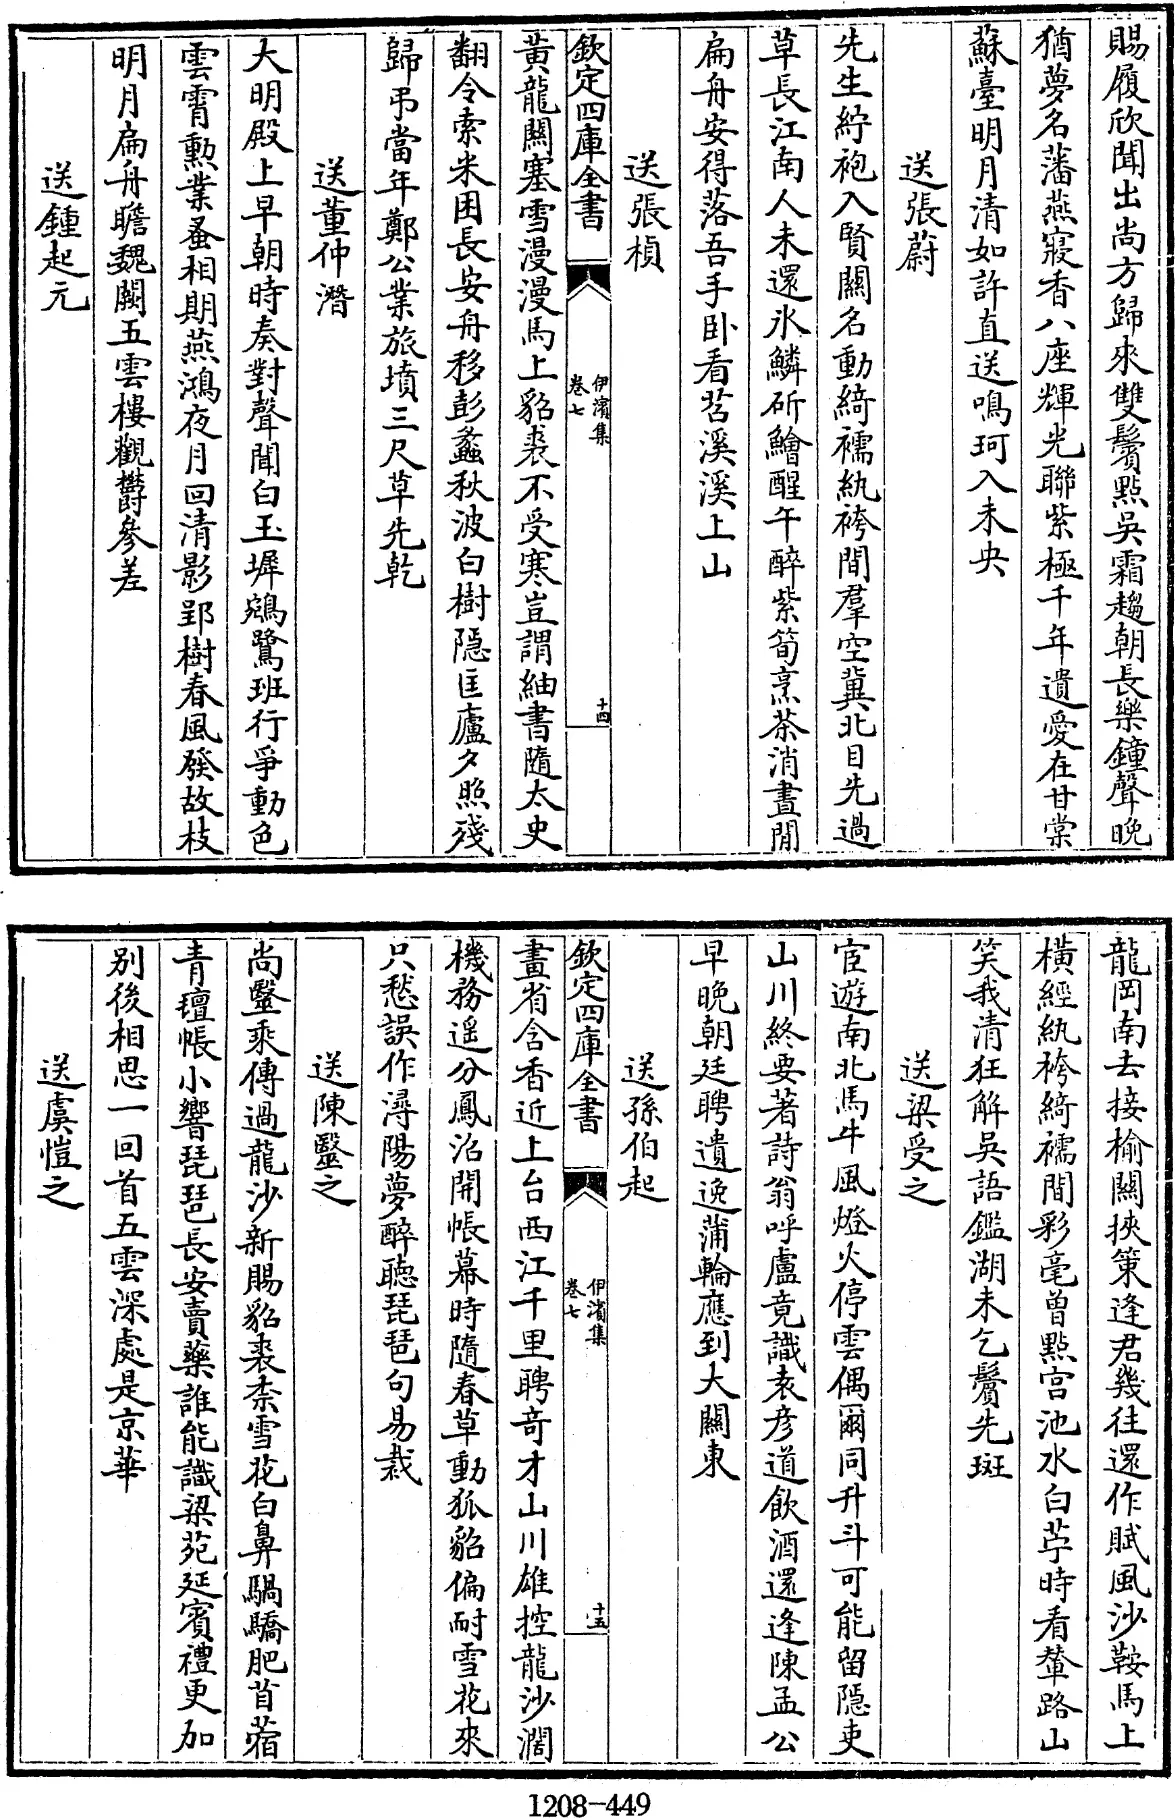 賜履欣聞出尚方歸來雙鬢點吳霜趨朝長樂鐘聲晚
猶夢名藩燕寢香八座輝光聯紫極千年遺愛在甘棠
蘇臺明月清如許直送鳴珂入未央
送張蔚
先生紵袍入賢關名動綺襦紈袴間羣空冀北目先過
草長江南人未還氷鱗斫鱠醒午醉紫筍烹茶消晝閒
扁舟安得落吾手卧看苕溪溪上山
送張楨
欽定四庫全書
伊濱集
卷七
十四
黃龍關塞雪漫漫馬上貂裘不受寒豈謂紬書隨太史
翻令索米困長安舟移彭蠡秋波白樹隠匡廬夕照殘
歸弔當年鄭公業旅墳三尺草先乾
送董仲潛
大明殿上早朝時奏對聲聞白玉墀鵷鷺班行爭動色
雲霄勲業蚤相期燕鴻夜月回清影郢樹春風發故枝
明月扁舟瞻魏闕五雲樓觀欝參差
送鍾起元
龍岡南去接榆關挾策逢君幾往還作賦風沙鞍馬上
橫經紈袴綺襦間彩毫曾點宫池水白苧時看輦路山
笑我清狂解吳語鑑湖未乞鬢先斑
送梁受之
宦遊南北馬牛風燈火停雲偶爾同升斗可能留隠吏
山川終要著詩翁呼盧竟識袁彦道飲酒還逢陳孟公
早晚朝廷聘遺逸蒲輪應到大關東
送孫伯起
欽定四庫全書
伊濱集
卷七
十五
畫省含香近上台西江千里聘竒才山川雄控龍沙濶
機務遥分鳳沼開帳幕時隨春草動狐貂偏耐雪花來
只愁誤作潯陽夢醉聽琵琶句易裁
送陳毉之
尚毉乘傳過龍沙新賜貂裘柰雪花白鼻騧驕肥苜蓿
青氊帳小響琵琶長安賣藥誰能識梁苑延賓禮更加
别後相思一回首五雲深處是京華
送虞愷之
1208-449